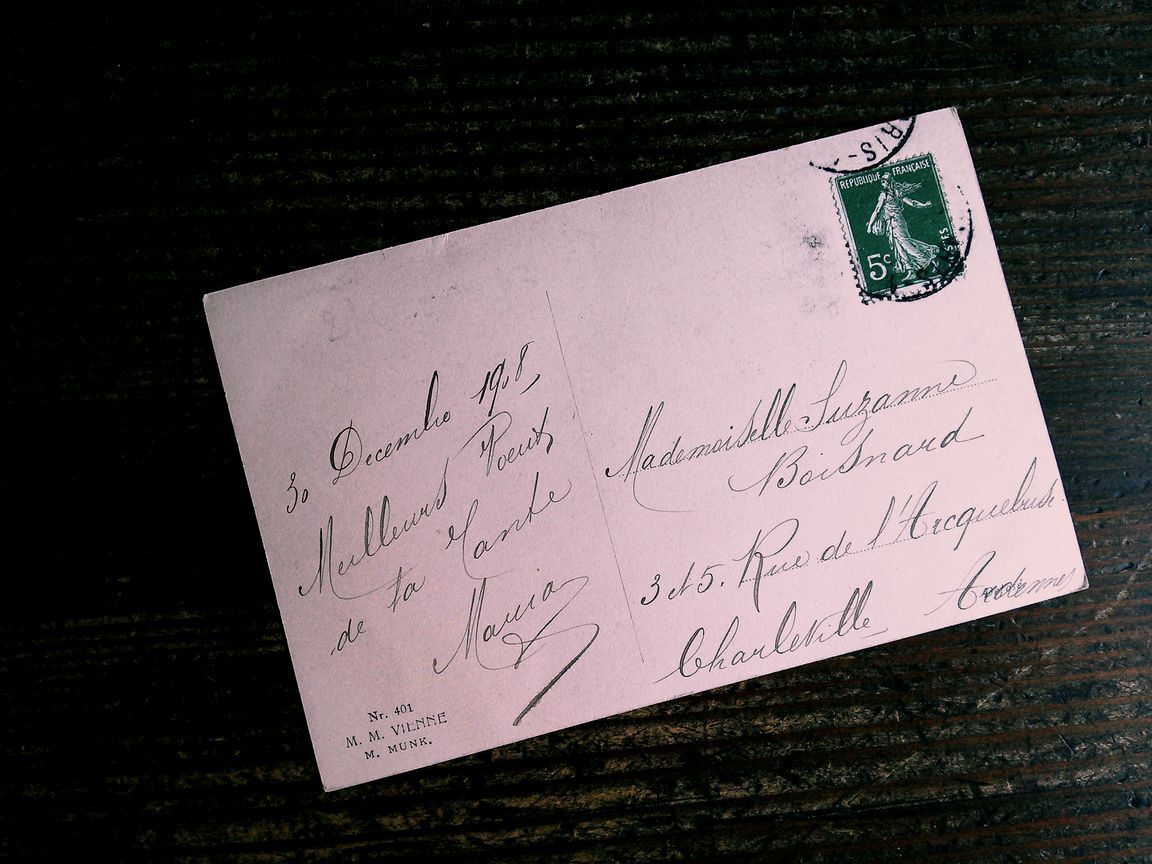 30 Decembre 1908,
Meilleurs Voeux
de ta Tante
Maria
Nr. 401
M. M. VIENNE
M. MUNK.
RIS
REPUBLIQUE FRANÇAISE
5c
Mademoiselle Suzanne
Boisnard
3 et 5. Rue de l'Arcquebuse
Charleville Ardennes